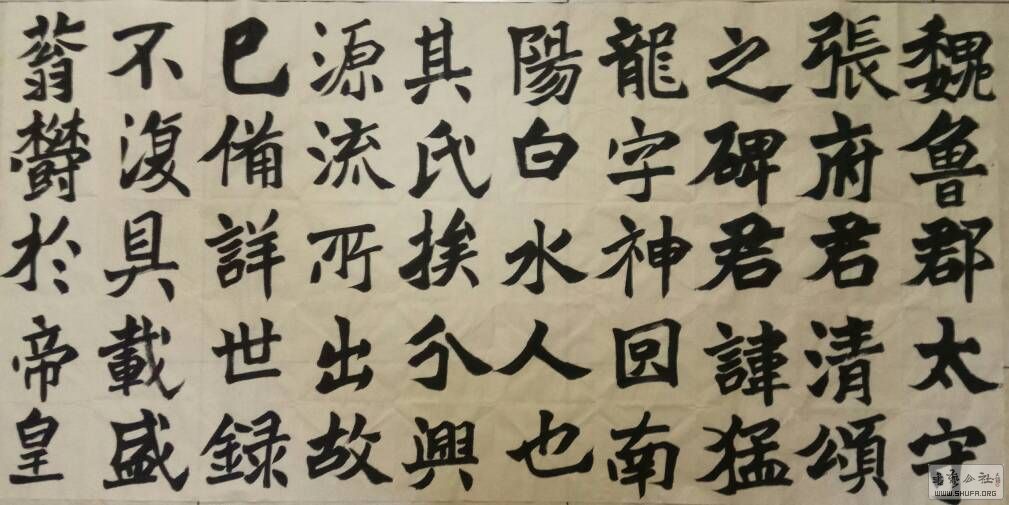 魏魯郡太守
張府君清頌
之碑君諱猛
龍字神囧南
陽白水人也
其氏挨分興
源流所出故
已備詳世録
不復具載盛
蓊欝於帝皇
书艺公社
WWW.SHUFA.ORG